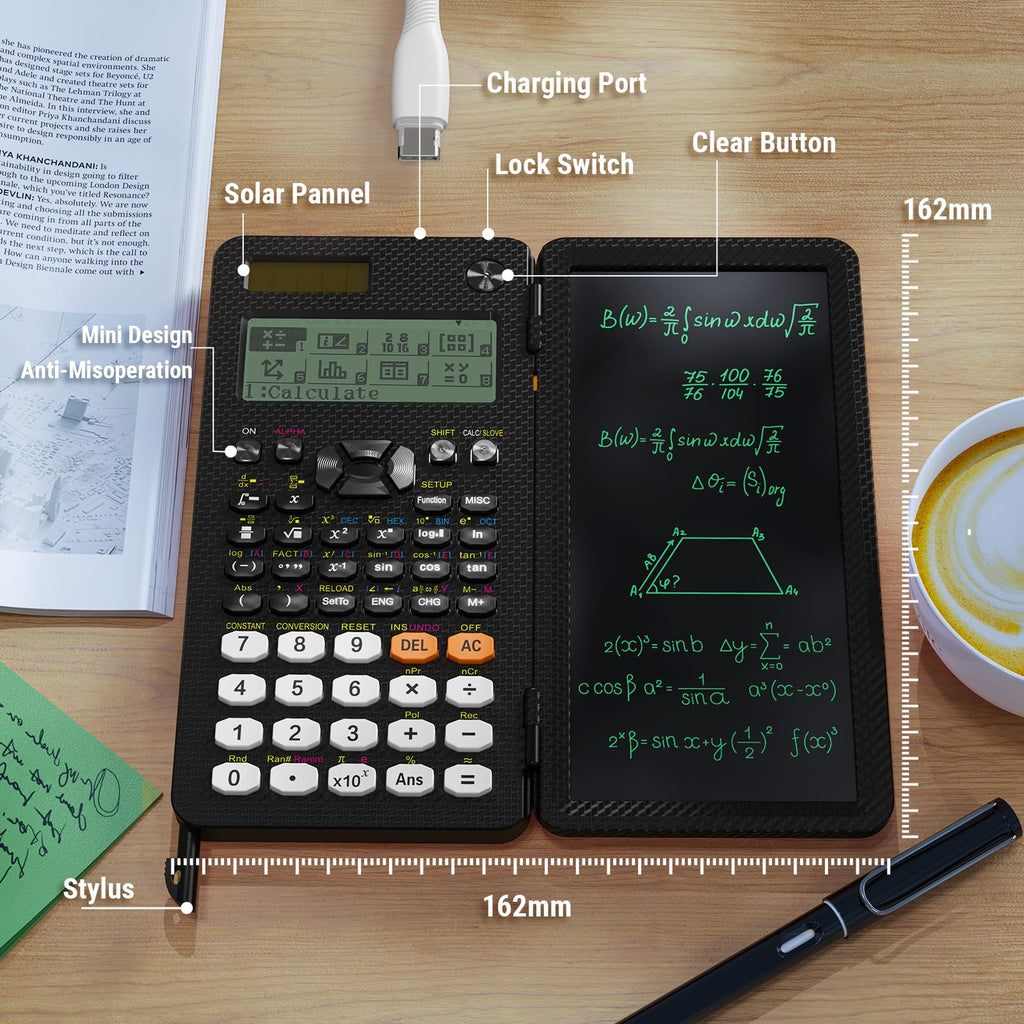 she has pioneered the creation of dramatic
and complex spatial environments. She
has designed stage sets for Beyoncé, U2
and Adele and created theatre sets for
plays such as The Lehman Trilogy at
the National Theatre and The Hunt at
Almeida. In this interview, she and
editor Priya Khanchandani discuss
current projects and she raises her
desire to design responsibly in an age of
KHANCHANDANI: Is
in design going to filter
to the upcoming London Design
which you've titled Resonance?
DEVLIN: Yes, absolutely. We are now
and choosing all the submissions
are coming in from all parts of the
We need to meditate and reflect on
current condition, but it's not enough.
the next step, which is the call to
How can anyone walking into the
Design Biennale come out with ▸
Charging Port
Lock Switch
Clear Button
Solar Pannel
162mm
Mini Design
Anti-Misoperation
1 2 3 4
5 6 7 8
1:Calculate
ON ALPHA SHIFT CALC/SLOVE
SETUP
x Function MISC
x³ DEC HEX 10 BIN e OCT
√ x² log ln
log [A] FACT [B] x! [C] sin⁻¹ [D] cos⁻¹ [E] tan⁻¹ [F]
(−) x⁻¹ sin cos tan
Abs , X RELOAD M− M
( ) SetTo ENG CHG M+
CONSTANT CONVERSION RESET INS UNDO OFF
7 8 9 DEL AC
nPr nCr
4 5 6 × ÷
Pol Rec
1 2 3 + −
Rnd Ran# RanInt π e % ≈
0 · ×10ˣ Ans =
B(w)=2/π ∫₀ sin w x dw √2/π
75/76 · 100/104 · 76/75
B(w)=2/π ∫₀ sin w x dw √2/π
Δ Θi = (Si)org
A₂ A₃
AB
A₁ φ? A₄
2(x)³=sinb Δy=∑ⁿₓ₌₀=ab²
c cosβ a²=1/sina a³(x-x⁰)
2ˣβ=sin x+y(1/2)² f(x)³
Stylus
162mm